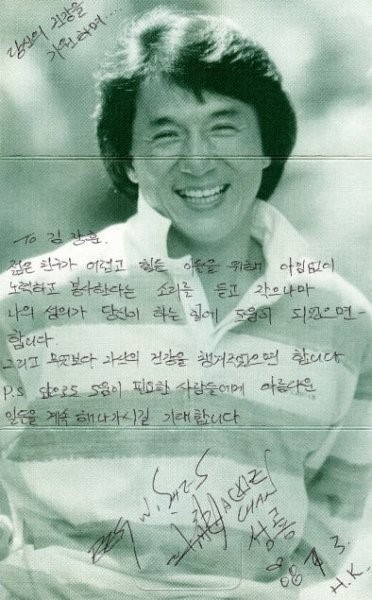 당신의 건강을
기원하며....
To 김장훈.
젊은 친구가 어렵고 힘든 이들을 위해 아낌없이
노력하고 봉사한다는 소리를 듣고 작으나마
나의 성의가 당신이 하는 일에 도움이 되었으면
합니다.
그리고 무엇보다 가신의 건강을 챙겨주었으면 합니다.
P.S 앞으로도 도움이 필요한 사람들에게 아름다운
일들을 계속 해나가시길 기대합니다
JACKIE
CHAN
성룡
H.K.